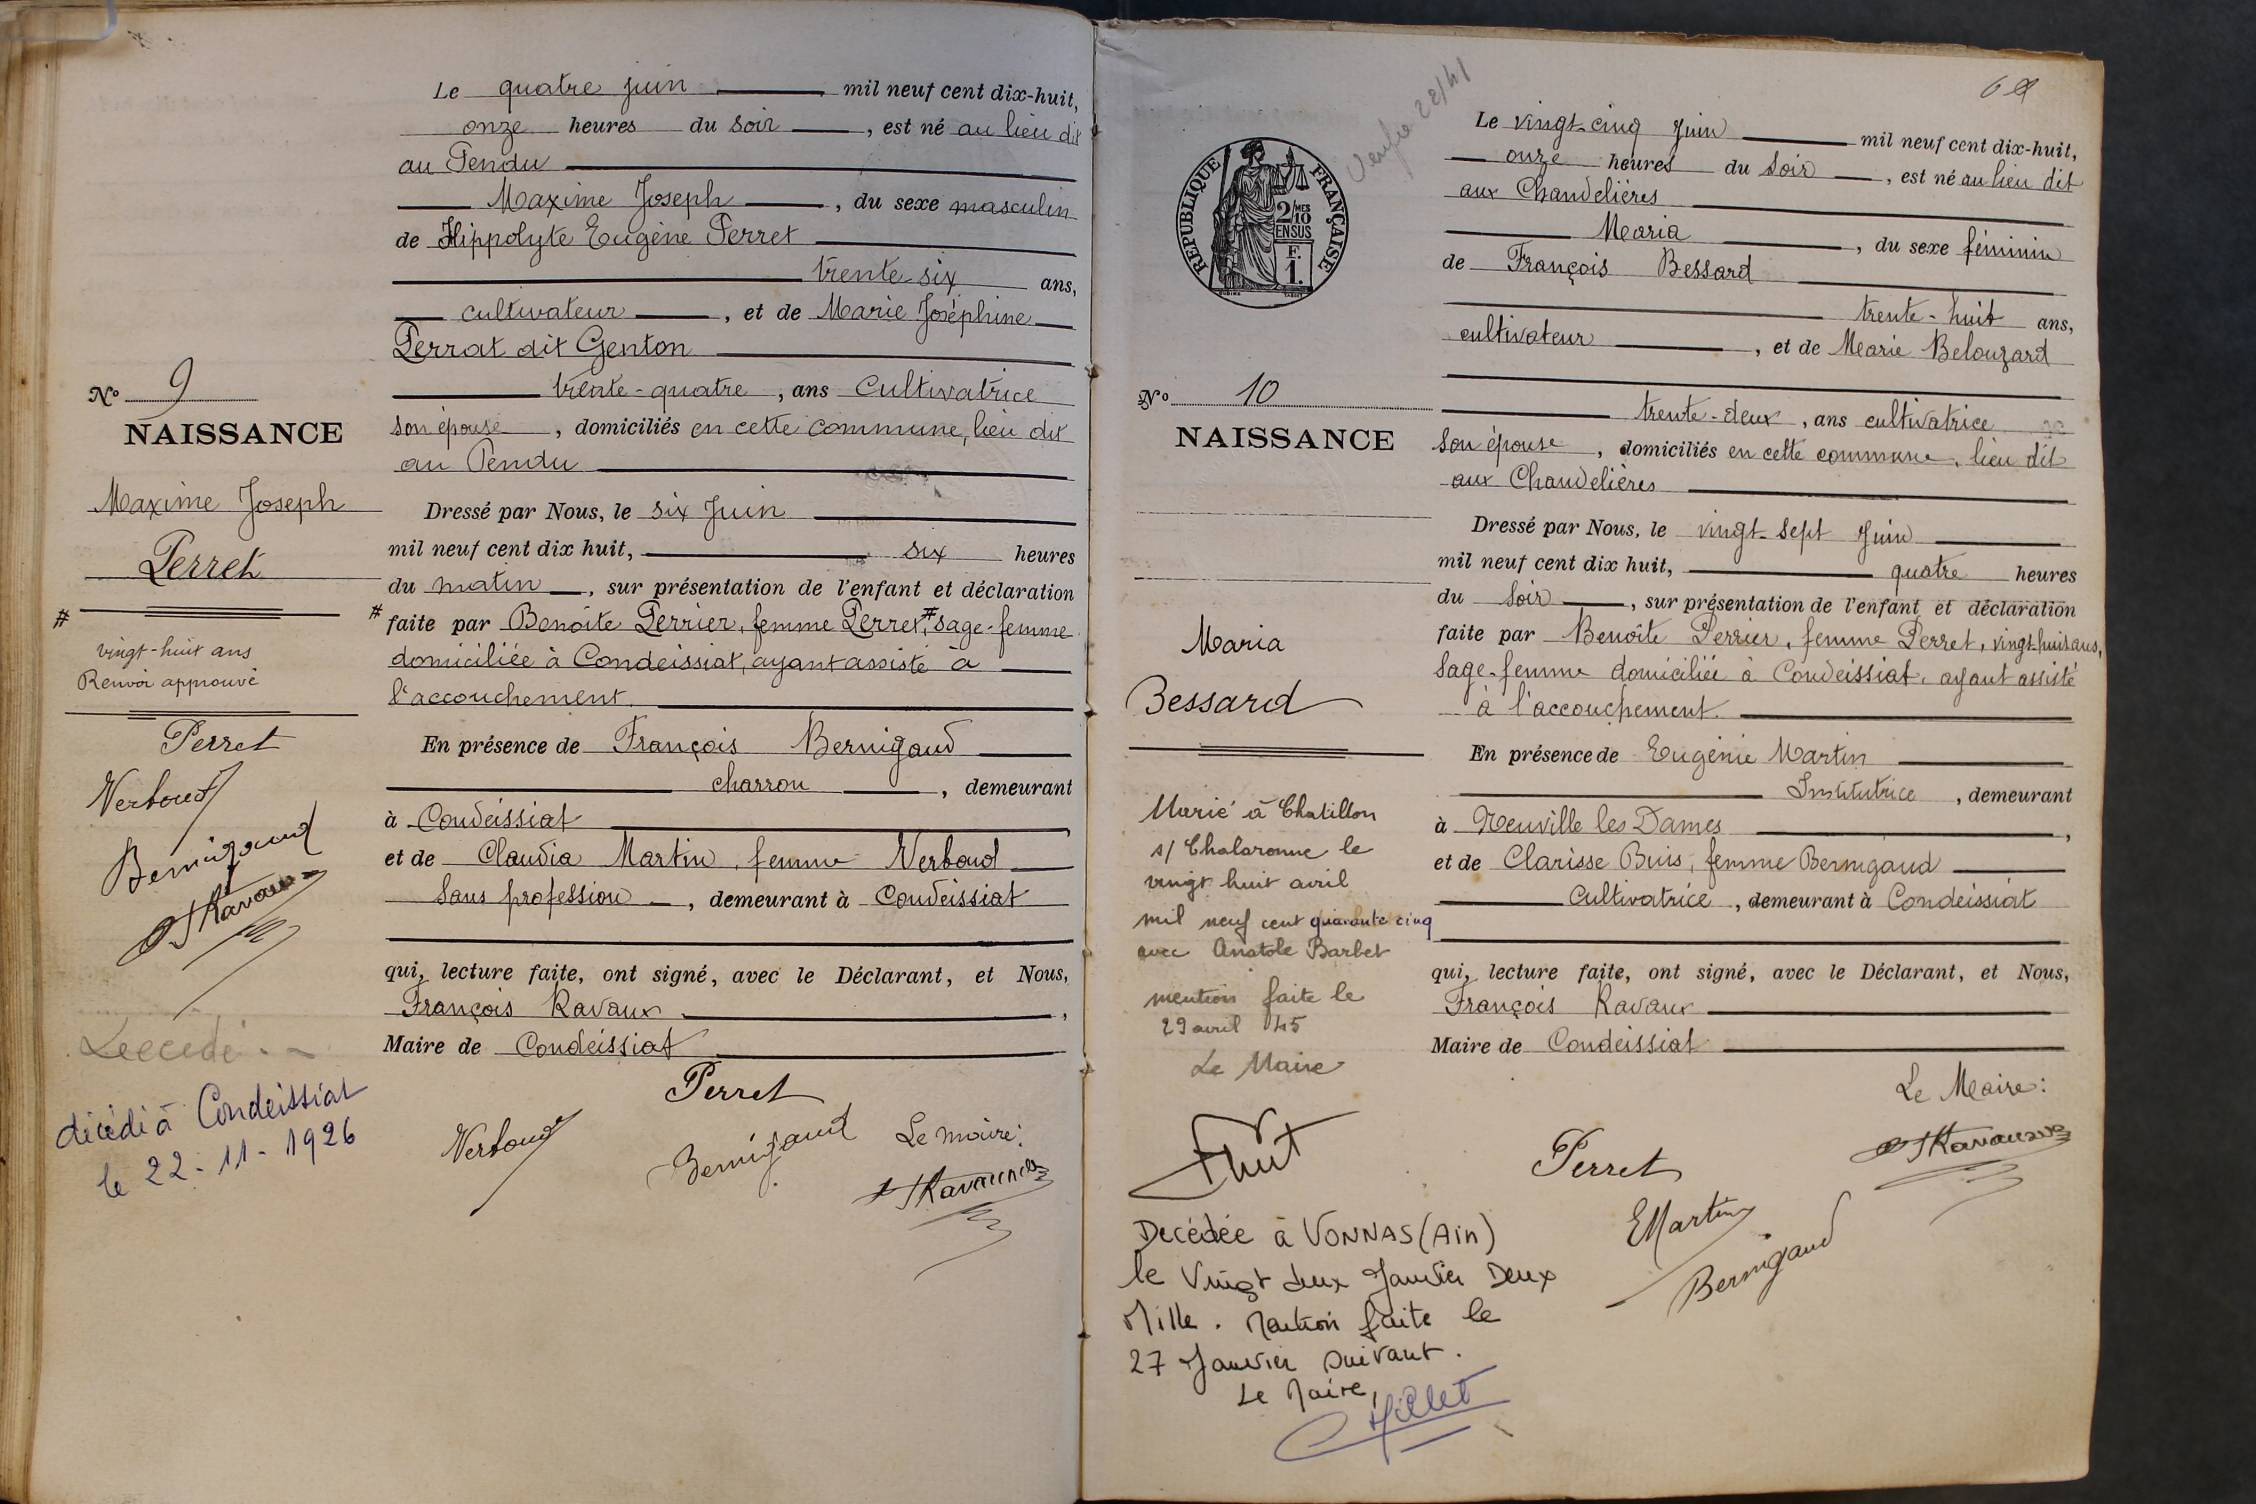 Le quatre juin mil neuf cent dix-huit,
onze heures du soir, est né au lieu dit
au Pendu
Maxime Joseph, du sexe masculin
de Hippolyte Eugène Perret
trente-six ans,
cultivateur, et de Marie Joséphine
Perrat dit Genton
trente-quatre, ans cultivatrice
son épouse, domiciliés en cette commune, lieu dit
au Pendu
Dressé par Nous, le six Juin
mil neuf cent dix huit, six heures
du matin, sur présentation de l'enfant et déclaration
# faite par Benoîte Perrier, femme Perret, # sage-femme
domiciliée à Condeissiat, ayant assisté à
l'accouchement.
En présence de François Bernigaud
charron, demeurant
à Condeissiat,
et de Claudia Martin, femme Verboud
sans profession, demeurant à Condeissiat
qui, lecture faite, ont signé, avec le Déclarant, et Nous,
François Ravaux,
Maire de Condeissiat
Perret
Verboud
Bernigaud
Le maire:
Ravaux
No 9
NAISSANCE
Maxime Joseph
Perret
#
vingt-huit ans
Renvoi approuvé
Perret
Verboud
Bernigaud
Ravaux
Décédé
décédé à Condeissiat
le 22-11-1926
Le vingt-cinq Juin mil neuf cent dix-huit,
onze heures du soir, est né au lieu dit
aux Chandelières
Maria, du sexe féminin
de François Bessard
trente-huit ans,
cultivateur, et de Marie Belouzard
trente-deux, ans cultivatrice
son épouse, domiciliés en cette commune, lieu dit
aux Chandelières
Dressé par Nous, le vingt-sept Juin
mil neuf cent dix huit, quatre heures
du soir, sur présentation de l'enfant et déclaration
faite par Benoîte Perrier, femme Perret, vingt-huit ans,
sage-femme domiciliée à Condeissiat, ayant assisté
à l'accouchement.
En présence de Eugénie Martin
Institutrice, demeurant
à Neuville les Dames,
et de Clarisse Buis, femme Bernigaud
Cultivatrice, demeurant à Condeissiat
qui, lecture faite, ont signé, avec le Déclarant, et Nous,
François Ravaux
Maire de Condeissiat
Le Maire:
Ravaux
Perret
EMartin
Bernigaud
RÉPUBLIQUE FRANÇAISE
2/MES
10
EN SUS
F.
1.
No 10
NAISSANCE
Maria
Bessard
Marié à Chatillon
s/ Chalaronne le
vingt huit avril
mil neuf cent quarante cinq
avec Anatole Barbet
mention faite le
29 avril 45
Le Maire
Décédée à VONNAS (Ain)
le Vingt deux Janvier Deux
Mille. Mention faite le
27 Janvier suivant.
Le Maire,